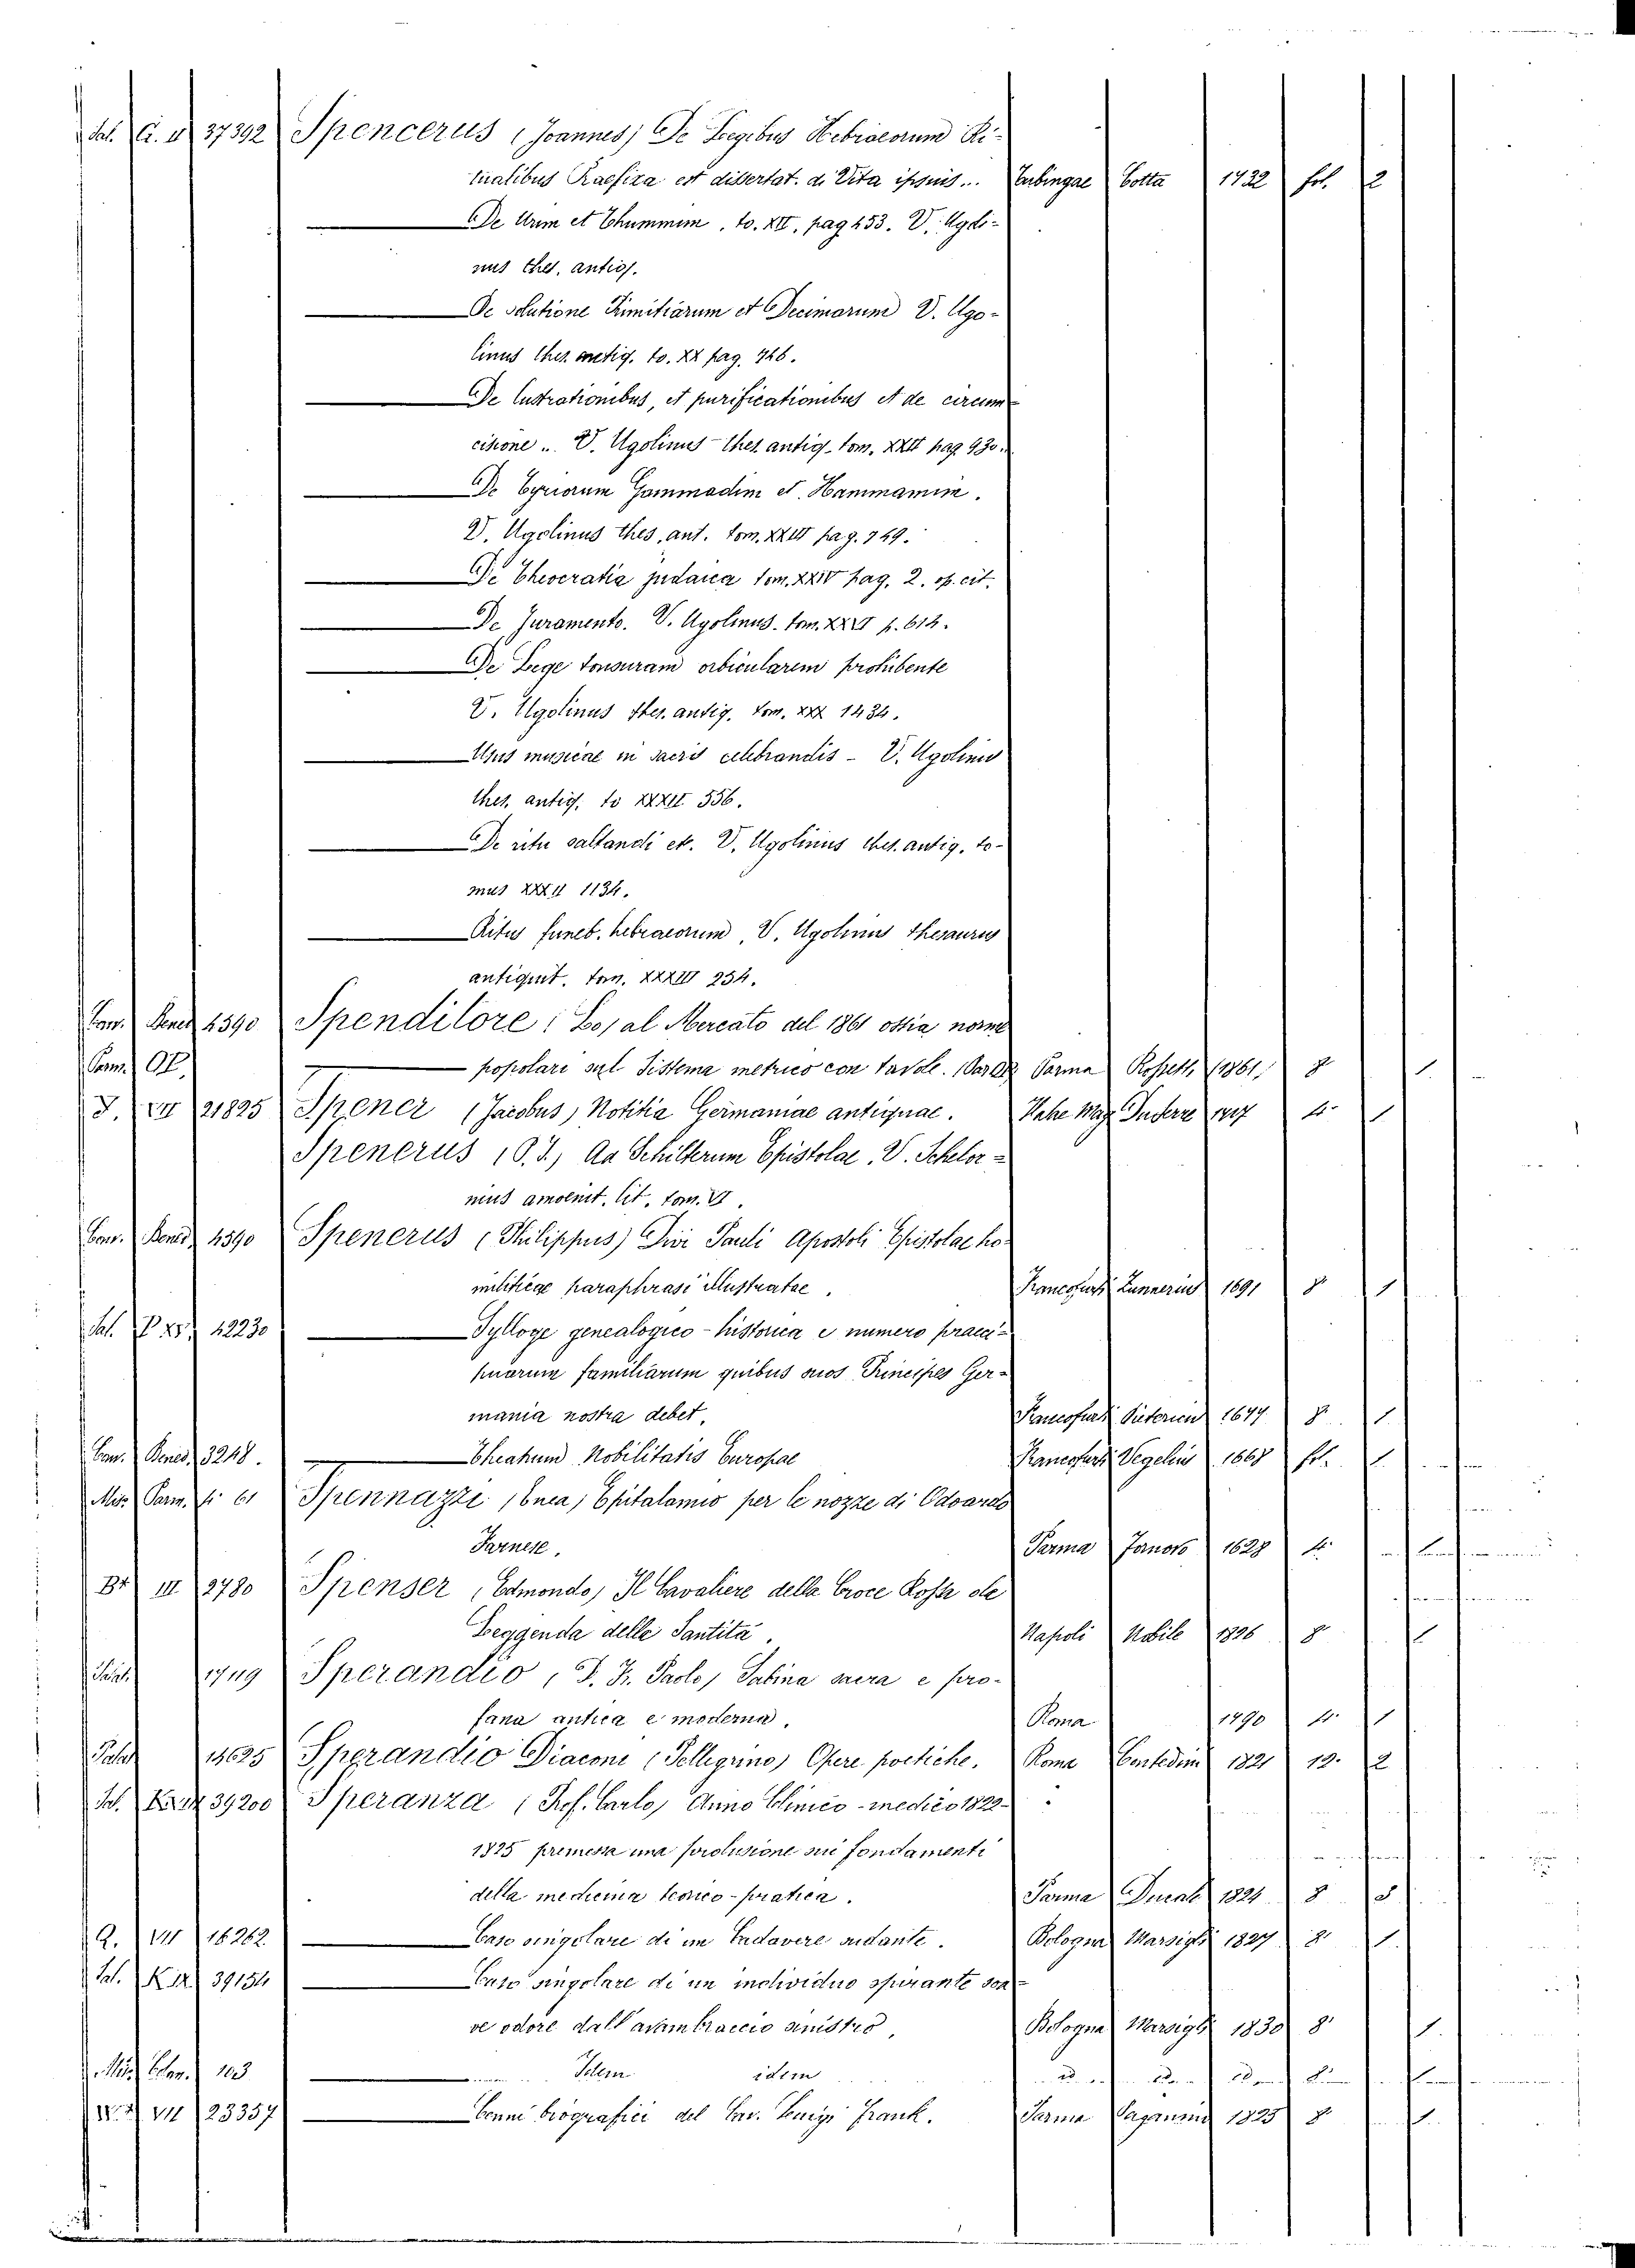 Sal. G. II 37392 Spencerus (Joannes) De Legibus Hebraeorum Ri-
tualibus Raefixa est dissertat. de Vita ipsius... Tubingae Cotta 1732 fol. 2
De Urim et Thummim, to. XII, pag 453. V. Ugoli-
nus thes. antiq.
De solutione Primitiarum et Decimarum V. Ugo-
linus thes. antiq. to. XX pag. 746.
De lustrationibus, et purificationibus et de circum-
cisione .. V. Ugolinus - thes. antiq. tom. XXII pag 930.
De Gammadim et Hammamim.
V. Ugolinus thes. ant. tom. XXIII pag. 749.
De Theocratia judaica tom. XXIV pag. 2. op. cit.
De Juramento. V. Ugolinus. tom. XXVI p. 614.
De Lege tonsuram orbicularem prohibente
V. Ugolinus thes. antiq. tom. XXX 1434.
Usus musicae in sacris celebrandis - V. Ugolinus
thes. antiq. to XXXII 556.
De ritu saltandi et. V. Ugolinus thes. antiq. to-
mus XXXII 1134.
Ritus funeb. hebraeorum, V. Ugolinus thesaurus
antiquit. tom. XXXIII 254.
Com. Bened. 4590 Spenditore: Lo, al Mercato del 1861 ossia norme
Parm. OP. popolari sul Sistema metrico con tavole. Parma Rossetti 1861 8 1
J. VII 21825 Spener (Jacobus) Notitia Germaniae antiquae. Hahe Mag 1717 4 1
Spenerus (P. J.) Ad Schilterum Epistolae. V. Schelor-
nius amoenit. lit. tom. VI.
Com. Bened. 4590 Spenerus (Philippus) Divi Pauli Apostoli Epistolae ho-
militicae paraphrasi illustratae. Francofurti Zunnerius 1691 8 1
Sal. P. XV. 42230 Sylloge genealogico-historica e numero praeci-
puarum familiarum quibus suos Principes Ger-
mania nostra debet. Francofurti 1677 8 1
Com. Bened. 3248. Theatrum Nobilitatis Europae Francofurti Vegelius 1668 fol. 1
Misc. Parm. fo. 61 Spennazzi (Enea) Epitalamio per le nozze di Odoardo
Farnese. Parma 1628 4. 1
B* III 2780 Spenser (Edmondo) Il Cavaliere della Croce Rossa o le
Leggenda delle Santità. Napoli Nobile 1826 8 1
1749 Sperandio (F. Fr. Paolo) Sabina sacra e pro-
fana antica e moderna. Roma 1790 4. 1
Palat 14625 Sperandio Diaconi (Pellegrino) Opere poetiche. Roma Contedini 1821 12. 2
Sal. 39200 Speranza (Prof. Carlo) Anno Clinico-medico 1822-
1825 premessa una prolusione sui fondamenti
della medicina teorico-pratica. Parma Ducale 1824 8 5
Q. VII 16262 Caso singolare di un Cadavere sudante. Bologna Marsigli 1827 8. 1.
Sal. K. IX. 39154 Caso singolare di un individuo spirante soa-
ve odore dall'avambraccio sinistro. Bologna Marsigli 1830 8° 1.
Misc. Eben. 103 Idem idem id idem idem 8 1
W.* VII 23357 Cenni biografici del Cav. Luigi Frank. Parma Paganini 1825 8. 1.